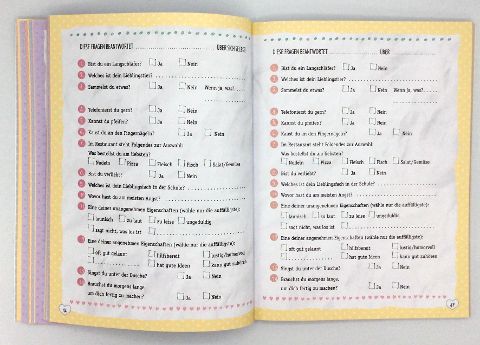 DIESE FRAGEN BEANTWORTET ............ ÜBER SICH SELBST
Bist du ein Langschläfer? Ja Nein
Welches ist dein Lieblingstier?
Sammelst du etwas? Ja Nein Wenn ja, was?
Telefonierst du gern? Ja Nein
Kannst du pfeifen? Ja Nein
Kaust du an den Fingernägeln? Ja Nein
Im Restaurant steht Folgendes zur Auswahl:
Was bestellst du am liebsten?
Nudeln Pizza Fleisch Fisch Salat/Gemüse
Bist du verliebt? Ja Nein
Welches ist dein Lieblingsfach in der Schule?
Wovor hast du am meisten Angst?
Eine deiner unangenehmen Eigenschaften (wähle nur die auffälligste):
launisch zu laut zu leise ungeduldig
sagt nicht, was los ist
Eine deiner angenehmen Eigenschaften (wähle nur die auffälligste):
oft gut gelaunt hilfsbereit lustig/humorvoll
hat gute Ideen kann gut zuhören
Singst du unter der Dusche? Ja Nein
Brauchst du morgens lange,
um dich fertig zu machen? Ja Nein
DIESE FRAGEN BEANTWORTET ............ ÜBER
Bist du ein Langschläfer? Ja Nein
Welches ist dein Lieblingstier?
Sammelst du etwas? Ja Nein Wenn ja, was?
Telefonierst du gern? Ja Nein
Kannst du pfeifen? Ja Nein
Kaust du an den Fingernägeln? Ja Nein
Im Restaurant steht Folgendes zur Auswahl:
Was bestellst du am liebsten?
Nudeln Pizza Fleisch Fisch Salat/Gemüse
Bist du verliebt? Ja Nein
Welches ist dein Lieblingsfach in der Schule?
Wovor hast du am meisten Angst?
Eine deiner unangenehmen Eigenschaften (wähle nur die auffälligste):
launisch zu laut zu leise ungeduldig
sagt nicht, was los ist
Eine deiner angenehmen Eigenschaften (wähle nur die auffälligste):
oft gut gelaunt hilfsbereit lustig/humorvoll
hat gute Ideen kann gut zuhören
Singst du unter der Dusche? Ja Nein
Brauchst du morgens lange,
um dich fertig zu machen? Ja Nein